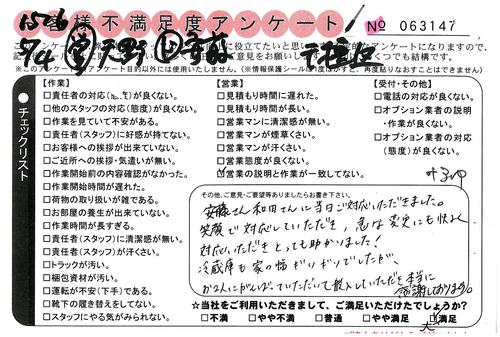 お客様不満足度アンケート
No 063147
チェックリスト
【作業】
□責任者の対応(態度)が良くない。
□他のスタッフの対応(態度)が良くない。
□作業を見ていて不安がある。
□責任者(スタッフ)に好感が持てない。
□お客様への挨拶が出来ていない。
□ご近所への挨拶・気遣いが無い。
□作業開始前の内容確認がなかった。
□作業開始時間が遅れた。
□荷物の取り扱いが雑である。
□お部屋の養生が出来ていない。
□作業時間が長すぎる。
□責任者(スタッフ)に清潔感が無い。
□責任者(スタッフ)が汗くさい。
□トラックが汚い。
□梱包資材が汚い。
□運転が不安(下手)である。
□靴下の履き替えをしてない。
□スタッフにやる気がみられない。
【営業】
□見積もり時間に遅れた。
□見積もり時間が長い。
□営業マンに清潔感が無い。
□営業マンが煙草くさい。
□営業マンが汗くさい。
□営業態度が良くない。
□営業の説明と作業が一致してない。
【受付・その他】
□電話の対応が良くない。
□オプション業者の説明
・作業が良くない。
□オプション業者の対応
(態度)が良くない。
その他、ご意見・ご要望等ありましたらお書き下さい。
安藤さん和田さんに当日ご対応いただきました。
笑顔で対応していただき、急な変更にも快よく
対応いただきとっても助かりました!
冷蔵庫も家の幅ギリギリでしたが、
お2人にがんばっていただいて搬入していただき本当に
感謝しております。
☆当社をご利用いただきまして、ご満足いただけたでしょうか?
□不満 □やや不満 □普通 □やや満足 □満足
大